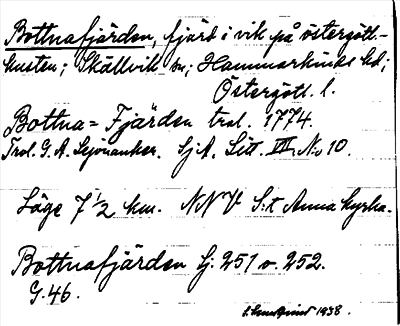 Bottnafjärden, fjärd i vik på östergötl.-
kusten; Skällvik sn; Hammarkinds hd;
Östergötl. l.
Bottna=Fjärden trol. 1774.
Trol. G. A. Lejonanker. SjA. Litt. VIII No 10.
Läge 7 1/2 km. NNV S:t Anna kyrka.
Bottnafjärden Sj: 251 o. 252.
G. 46.
1938.